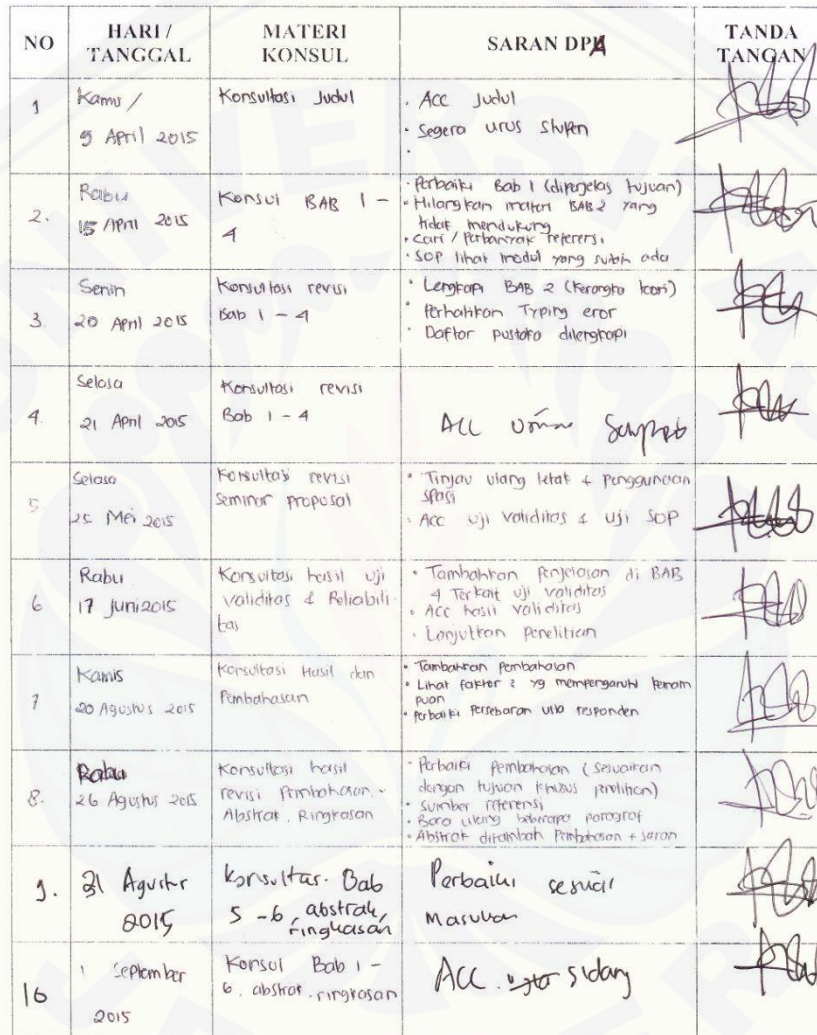 NO
HARI / TANGGAL
MATERI KONSUL
SARAN DPA
TANDA TANGAN
1
Kamis /
9 April 2015
Konsultasi Judul
• ACC Judul
• Segera urus Stupen
•
2.
Rabu
15 April 2015
Konsul BAB 1 -
4
• Perbaiki Bab 1 (diperjelas tujuan)
• Hilangkan materi BAB 2 yang
tidak mendukung
• Cari / Perbanyak referensi
• SOP lihat modul yang sudah ada
3.
Senin
20 April 2015
Konsultasi revisi
Bab 1 - 4
• Lengkapi BAB 2 (Kerangka teori)
• Perhatikan Typing eror
• Daftar pustaka dilengkapi
4.
Selasa
21 April 2015
Konsultasi revisi
Bab 1 - 4
ACC
5.
Selasa
25 Mei 2015
Konsultasi revisi
Seminar proposal
• Tinjau ulang letak & penggunaan
spasi
• Acc uji validitas & uji SOP
6
Rabu
17 Juni 2015
Konsultasi hasil uji
validitas & Reliabili-
tas
• Tambahkan penjelasan di BAB
4 Terkait uji validitas
• ACC hasil validitas
• Lanjutkan penelitian
7
Kamis
20 Agustus 2015
Konsultasi Hasil dan
Pembahasan
• Tambahkan Pembahasan
• Lihat faktor 2 yg mempengaruhi kemam
puan
• Perbaiki Persebaran usia responden
8.
Rabu
26 Agustus 2015
Konsultasi hasil
revisi Pembahasan.-
Abstrak, Ringkasan
• Perbaiki pembahasan (sesuaikan
dengan tujuan khusus penelitian)
• Sumber referensi
• Baca ulang beberapa paragraf
• Abstrak ditambah Pembahasan + saran
9.
31 Agustus
2015
Konsultas. Bab
5 - 6, abstrak,
ringkasan
Perbaiki sesuai
masukan
10
1 September
2015
Konsul Bab 1 -
6, abstrak, ringkasan
ACC sidang